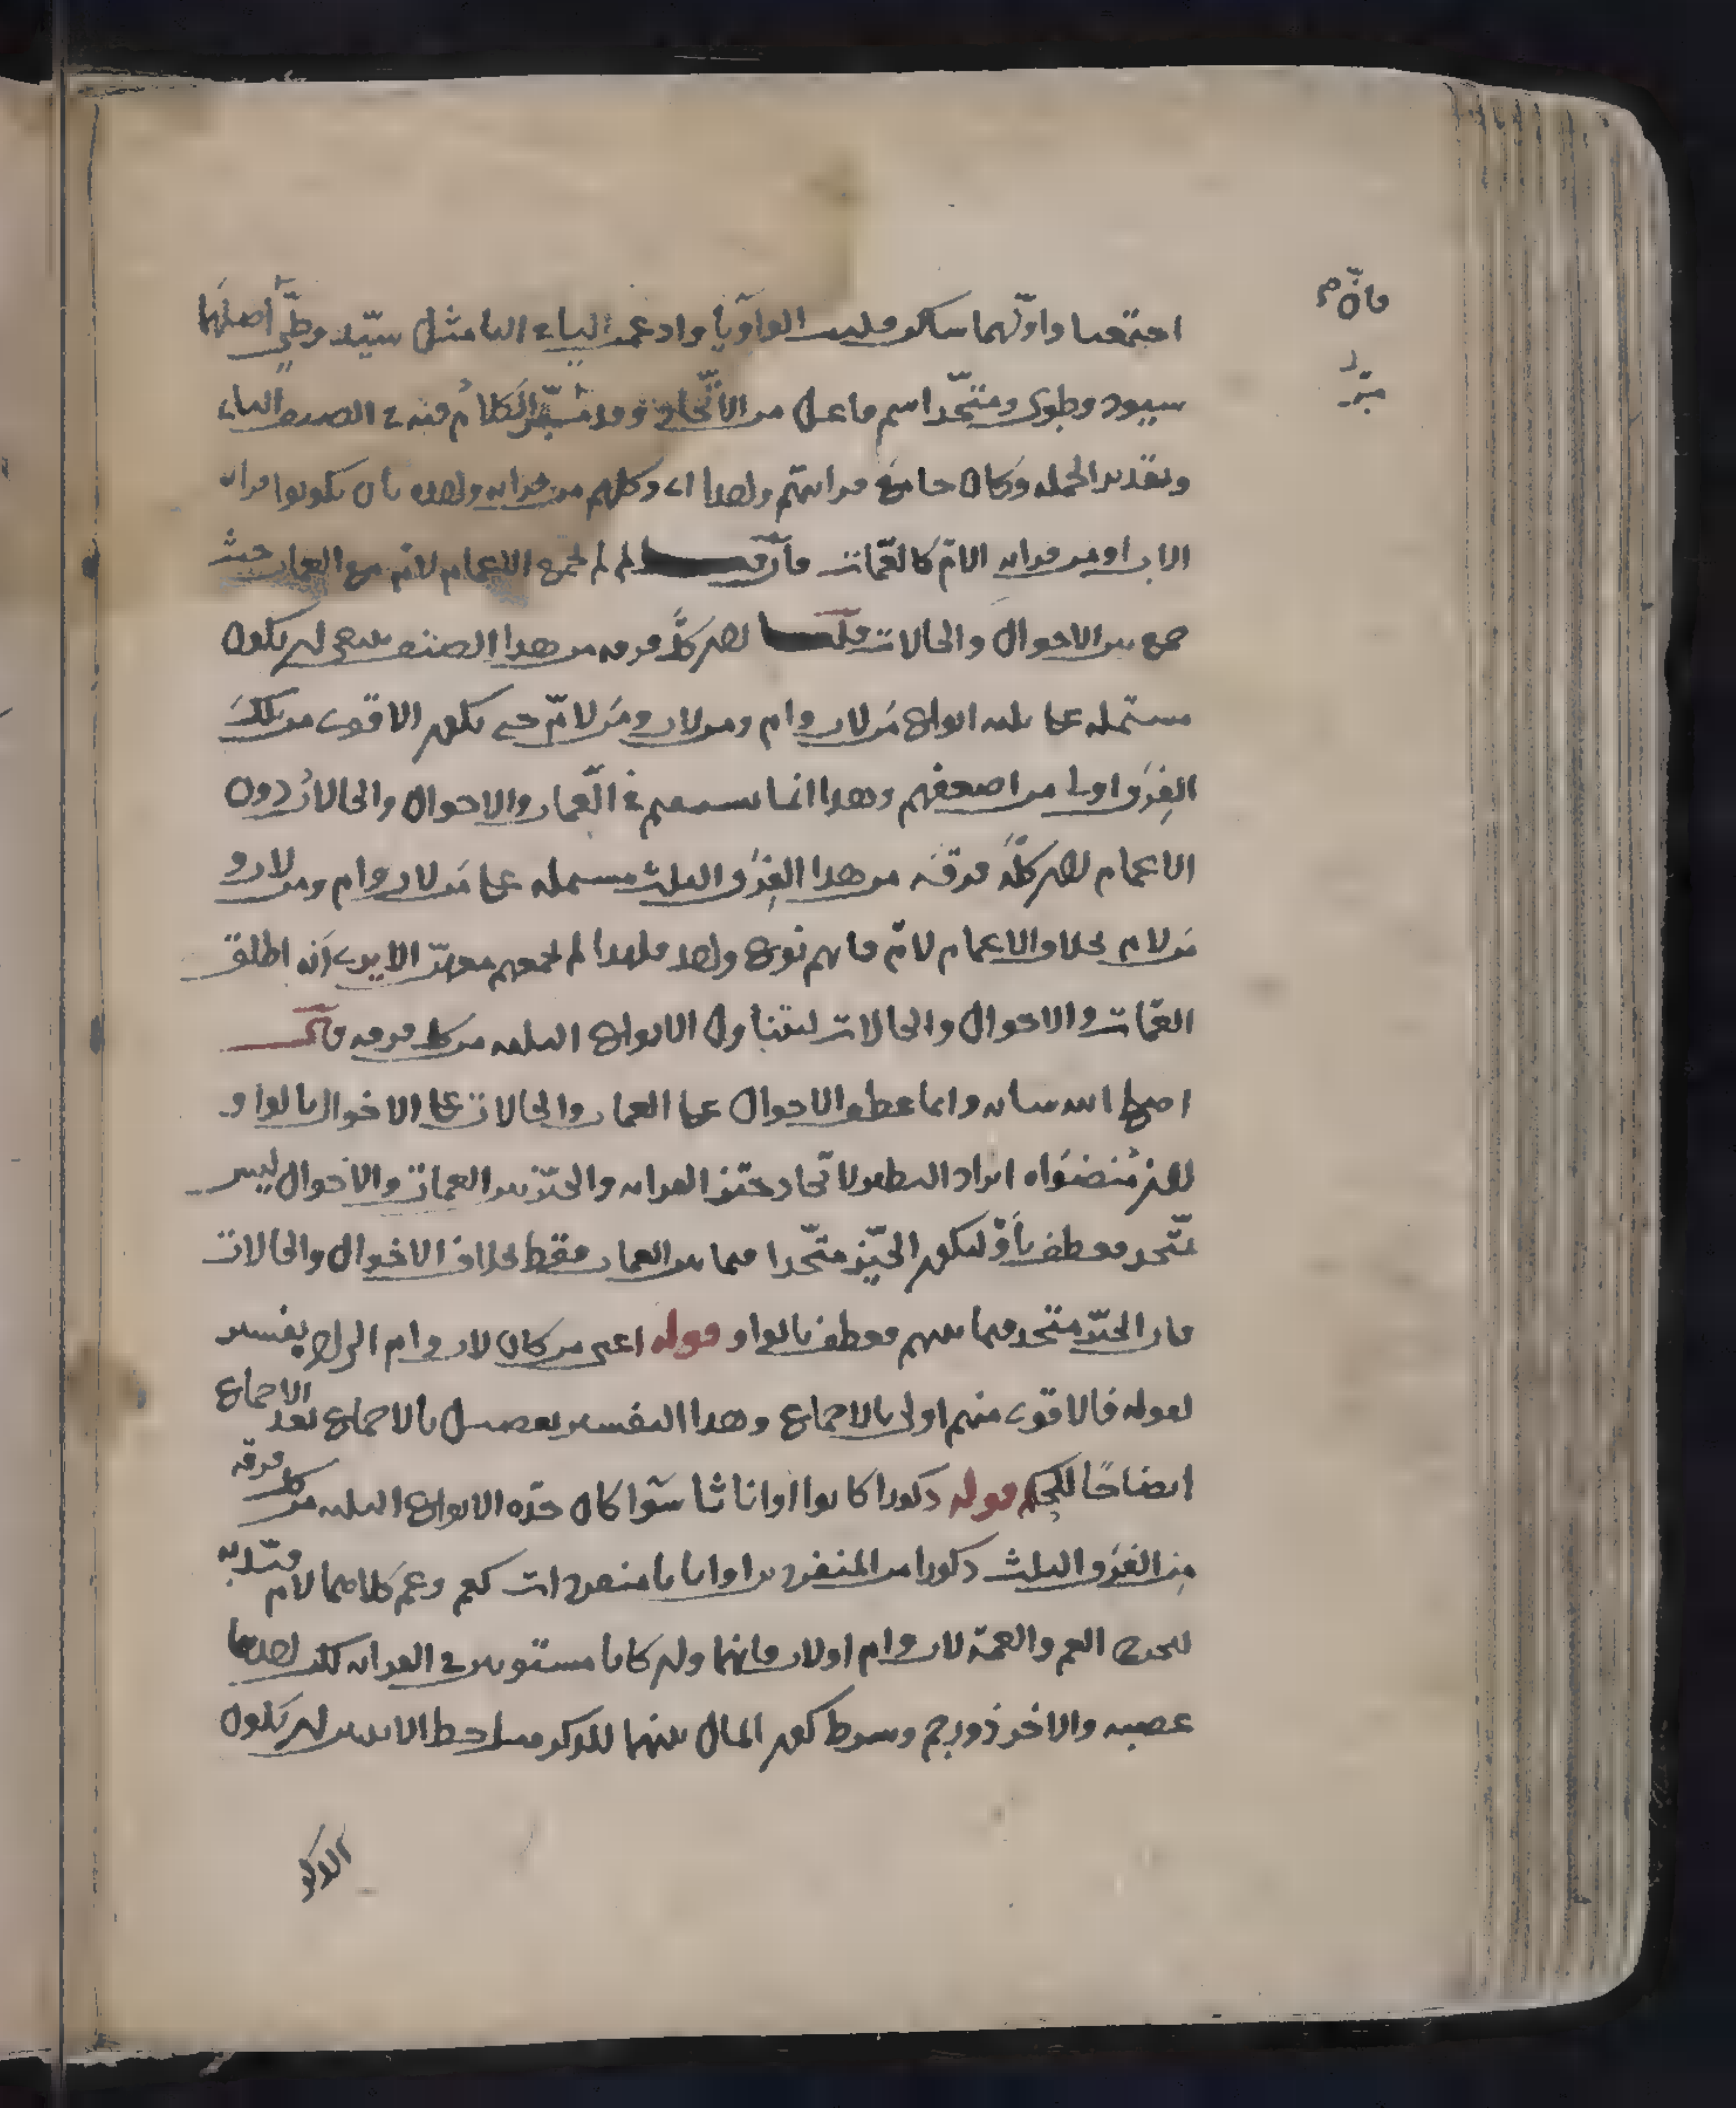 اجتمعتا واولهما ساكن قلبت الواو يا وادغمت الياء اليا مثل سيّد وطيّ أصلهما
سيود وطوى ومتّحد اسم فاعل من الاتّحاد وقد مُيّز الكلامُ فيه في الصنف الثاني
وتقدير الجمله وكان جامع قرابتهم واحدا اى وكلهم من قرابه واحده بان يكونوا قرابه
الاب او من قرابه الام كالعمّات فان قيل لم لم يجمع الاعمام لام مع العمات حيث
جمع بين الاخوال والخالات قلنا لان كل فرقه من هذا الصنف ينبغي ان يكون
مشتمله على ثلثه انواع من لاب وام ومن لاب ومن لامّ حتى يكون الاقوى من تلك
الفِرَق اولى من اضعفهم وهذا انما يستقيم في العمات والاخوال والخالات دون
الاعمام لان كلّ فرقه من هذا الفِرَق الثلث مشتمله على من لاب وام ومن لاب و
من لام بخلاف الاعمام لامّ فانهم نوع واحد فلهذا لم يجمعهم معهنّ الا يرى انه اطلق
العمّات والاخوال والخالات ليتناول الانواع الثلثه من كل فرقه قال
اصلح الله شانه وانما عطف الاخوال على العمات والخالات على الاخوال بالواو
لان مقتضاه ايراد النظير لاتحاد حيّز القرابه والحيّز بين العمات والاخوال ليس
متّحد فعطف بأو ليكون الحيّز متّحدا فيما بين العمات فقط بخلاف الاخوال والخالات
فان الحيّز متّحد فيما بينهم فعطف بالواو قوله اعنى من كان لاب وام الى اخره تفسير
لقوله فالاقوى منهم اولى بالاجماع وهذا التفسير تفصيل بالاجماع بعد الاجماع
ايضاحًا للحكم قوله ذكورا كانوا او اناثا سوا كان هذه الانواع الثلثه من كل فرقه
مِن الفِرَق الثلث ذكورا من المنفردين او اناثا منفردات كعم وعم كلاهما لام قيّد به
لخروج العم والعمة لاب وام او لاب فانهما وان كانا مستويين في القرابه لكن احدهما
عصبه والاخر ذو رحم وشرط كون المال بينهما للذكر مثل حظ الانثيين ان يكون
الذكو
فانّهم